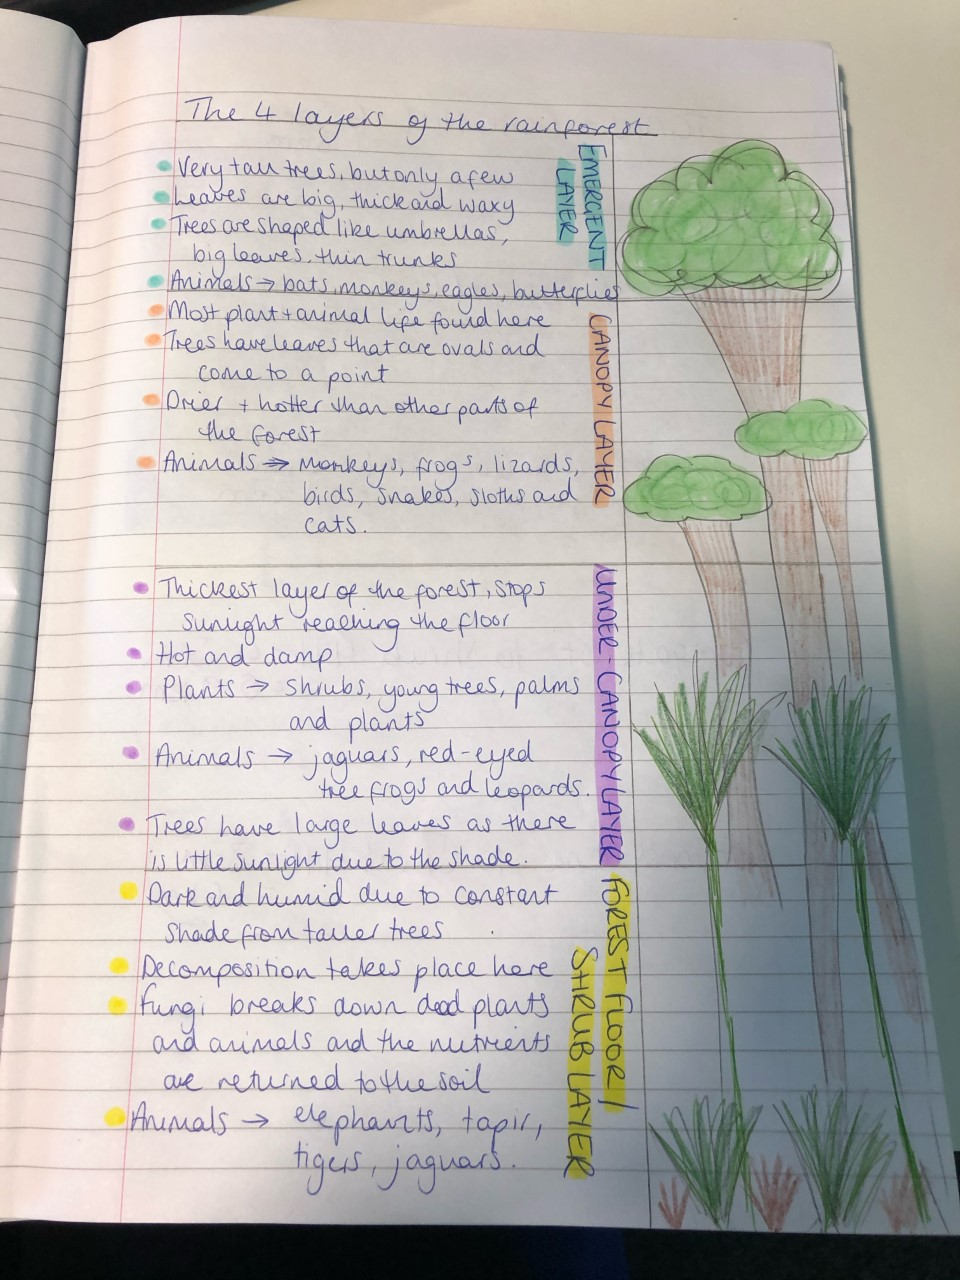 The 4 layers of the rainforest
EMERGENT
LAYER
Very tall trees, but only a few
Leaves are big, thick and waxy
Trees are shaped like umbrellas,
big leaves, thin trunks
Animals → bats, monkeys, eagles, butterflies
CANOPY LAYER
Most plant + animal life found here
Trees have leaves that are ovals and
come to a point
Drier + hotter than other parts of
the forest
Animals → monkeys, frogs, lizards,
birds, snakes, sloths and
cats.
UNDER-CANOPY LAYER
Thickest layer of the forest, stops
sunlight reaching the floor
Hot and damp
Plants → shrubs, young trees, palms
and plants
Animals → jaguars, red-eyed
tree frogs and leopards.
Trees have large leaves as there
is little sunlight due to the shade.
FOREST FLOOR /
SHRUB LAYER
Dark and humid due to constant
shade from taller trees
Decomposition takes place here
Fungi breaks down dead plants
and animals and the nutrients
are returned to the soil
Animals → elephants, tapir,
tigers, jaguars.